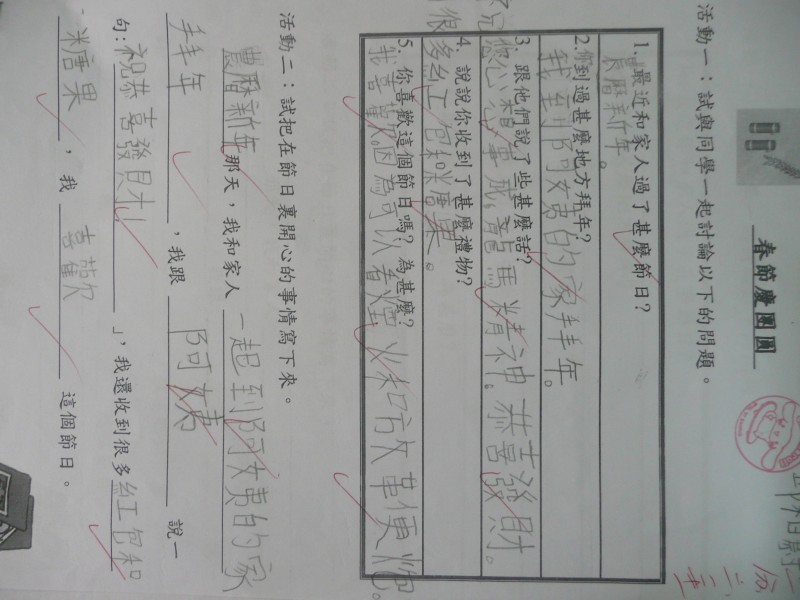 春節慶團圓
活動一：試與同學一起討論以下的問題。
1. 最近和家人過了甚麼節日？
農曆新年。
2. 你到過甚麼地方拜年？
我到阿姨的家拜年。
3. 跟他們說了些甚麼話？
龍馬精神。恭喜發財。
4. 說說你收到了甚麼禮物？
很多紅包和糖果。
5. 你喜歡這個節日嗎？為甚麼？
我喜歡。因為可以看煙火和放鞭炮。
活動二：試把在節日裏開心的事情寫下來。
農曆新年那天，我和家人一起到阿姨的家
拜年，我跟阿姨說一
句：祝恭喜發財」，我還收到很多紅包和
糖果，我喜歡這個節日。